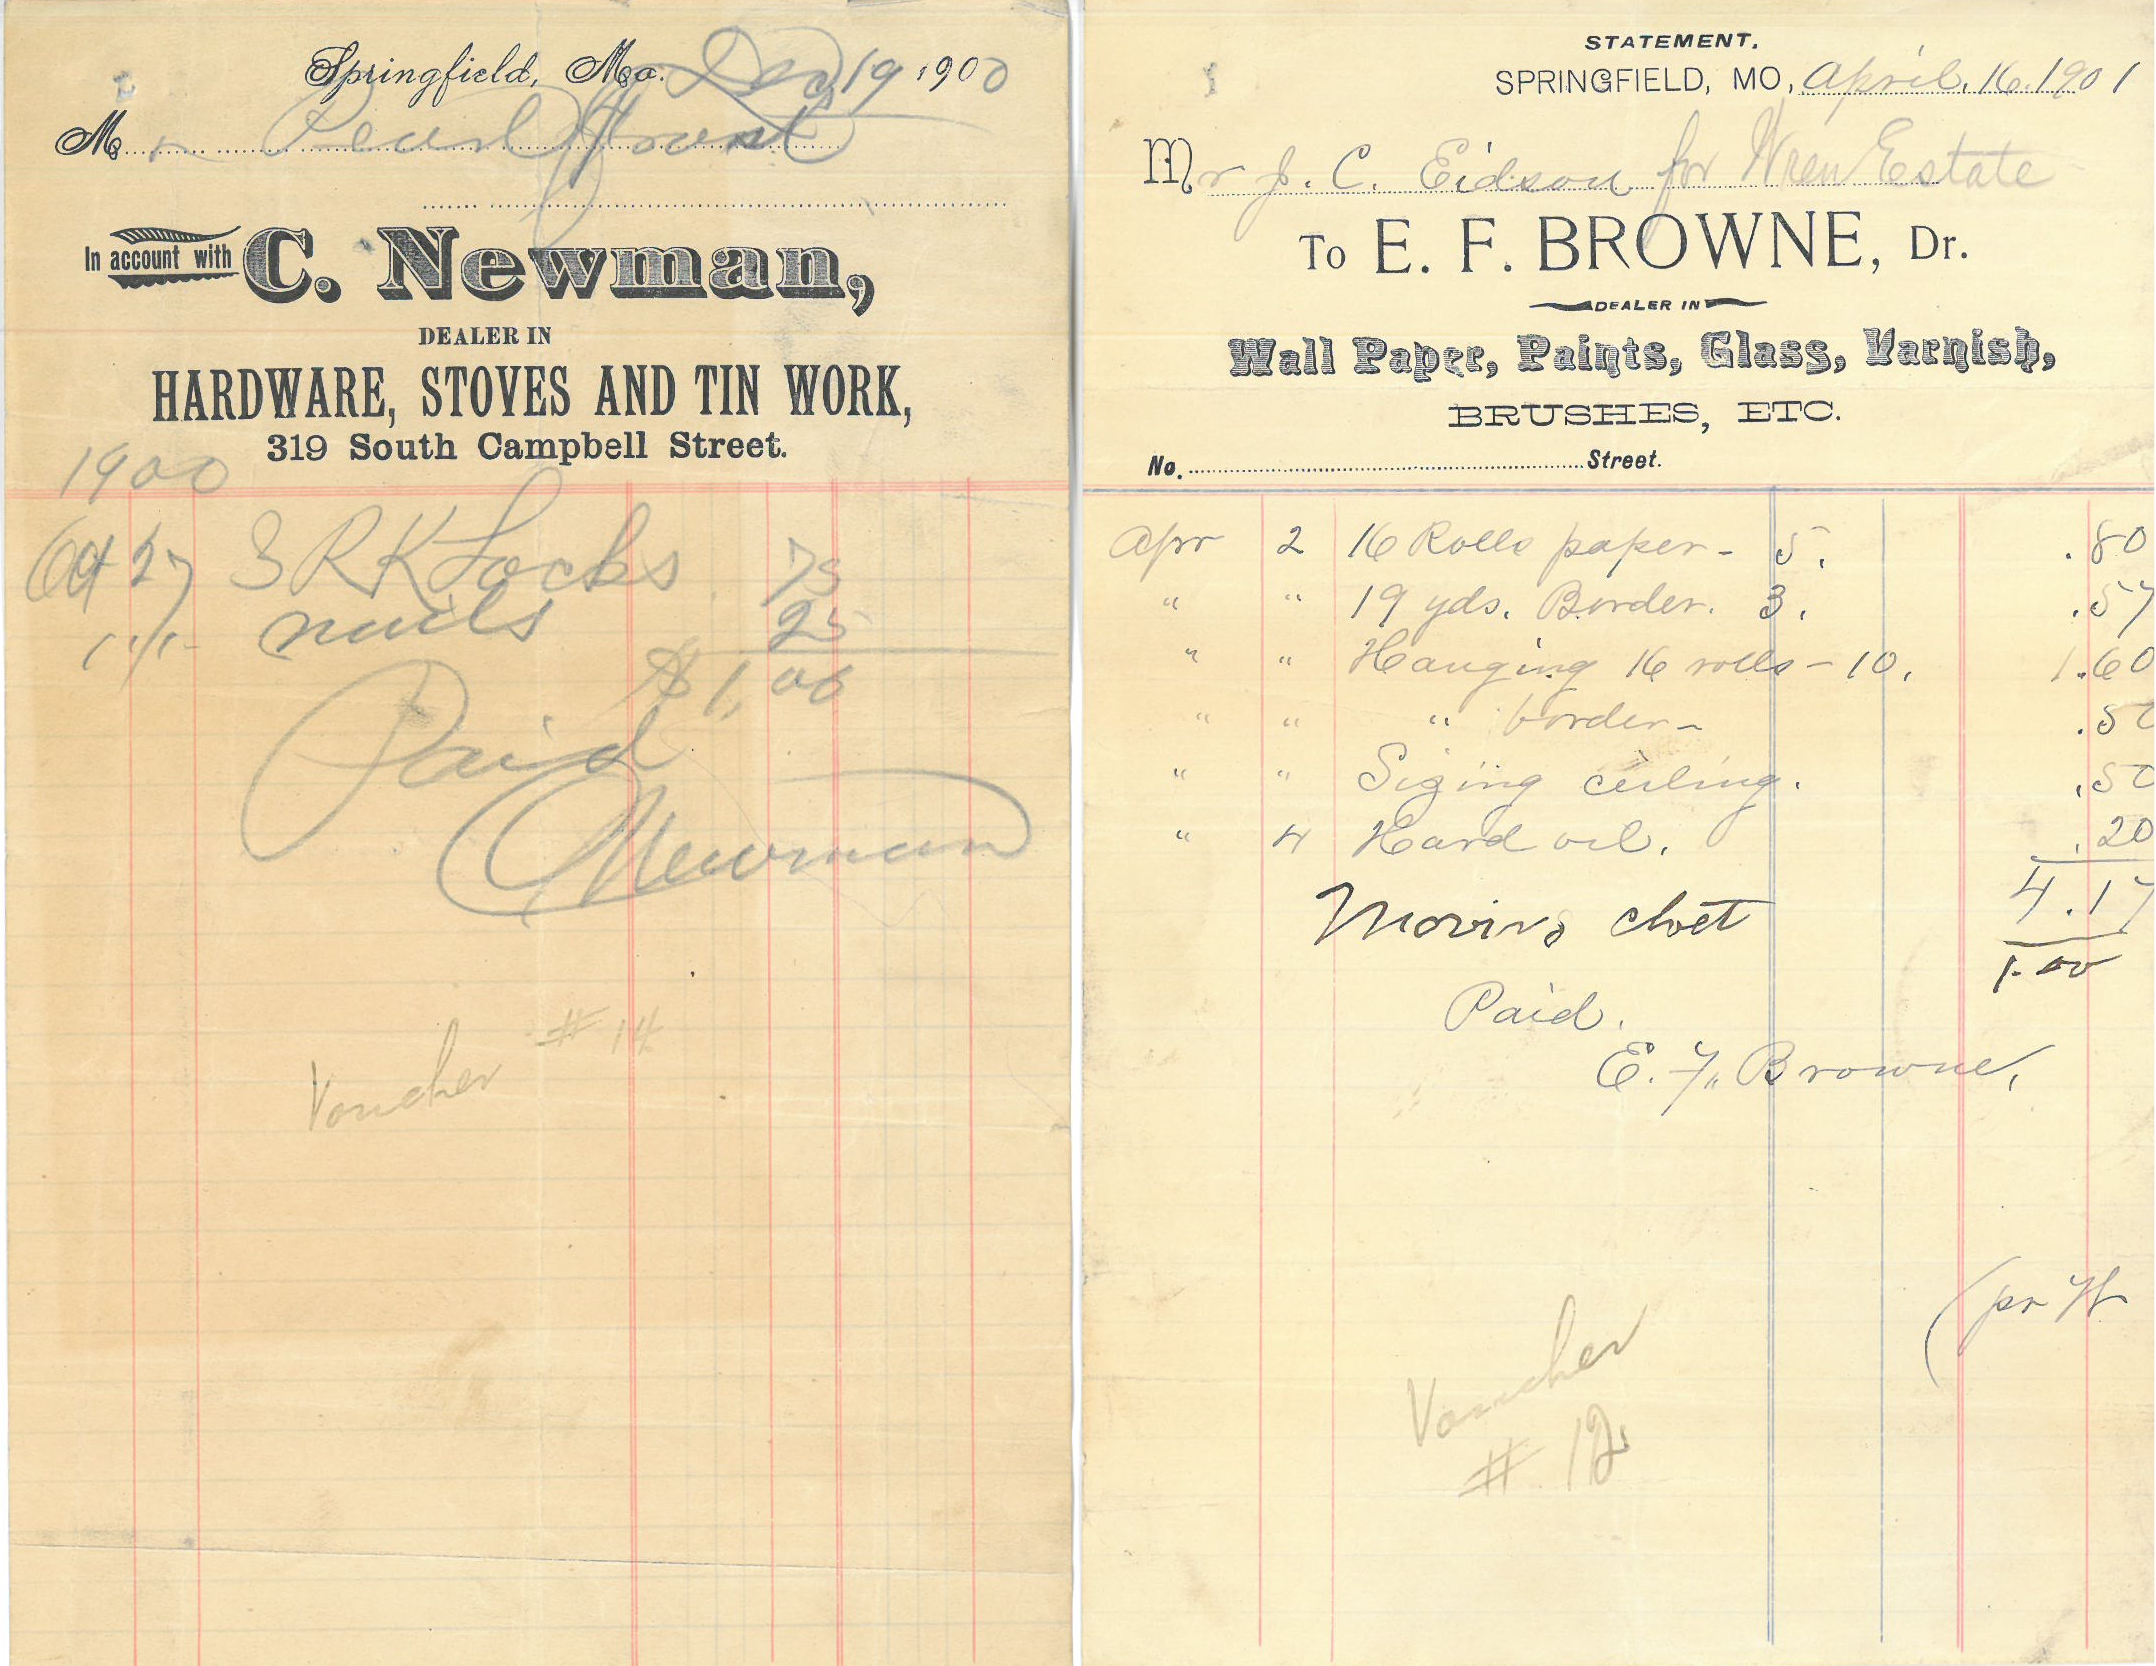 Springfield, Mo. Dec 19 1900
Mr Pearl
In account with C. Newman,
DEALER IN
HARDWARE, STOVES AND TIN WORK,
319 South Campbell Street.
1900
Oct 27 3 RK Locks 75
" " nails 25
$1,00
Paid
C Newman
Voucher #14
STATEMENT.
SPRINGFIELD, MO, April. 16. 1901
Mr J. C. Eidson for Wren Estate
To E. F. BROWNE, Dr.
DEALER IN
Wall Paper, Paints, Glass, Varnish,
BRUSHES, ETC.
No. Street.
Apr 2 16 Rolls paper - 5. .80
" " 19 yds. Border. 3. .57
" " Hanging 16 rolls - 10. 1.60
" " " border - .50
" " Sizing ceiling. .50
" 4 Hard oil. .20
4.17
Moving 1.00
Paid.
E. F. Browne.
(pr
Voucher